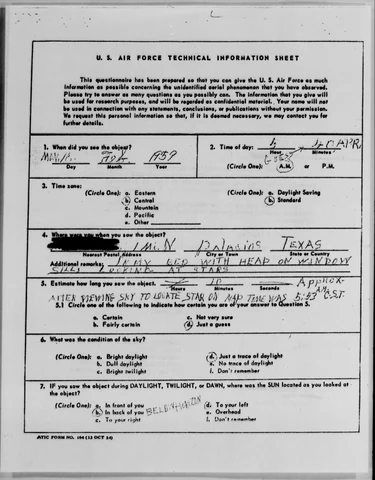 U. S. AIR FORCE TECHNICAL INFORMATION SHEET
This questionnaire has been prepared so that you can give the U. S. Air Force as much
information as possible concerning the unidentified aerial phenomenon that you have observed.
Please try to answer as many questions as you possibly can. The information that you give will
be used for research purposes, and will be regarded as confidential material. Your name will not
be used in connection with any statements, conclusions, or publications without your permission.
We request this personal information so that, if it is deemed necessary, we may contact you for
further details.
1. When did you see the object?
1959
Day Month Year
2. Time of day: 5
Hour Minutes
(Circle One): A.M. or P.M.
3. Time zone:
(Circle One): a. Eastern
b. Central
c. Mountain
d. Pacific
e. Other
(Circle One): a. Daylight Saving
b. Standard
4. Where were you when you saw the object?
TEXAS
Nearest Postal Address City or Town State or Country
Additional remarks: IN MY BED WITH HEAD ON WINDOW
SILL LOOKING AT STARS
5. Estimate how long you saw the object. 10 APPROX.
Hours Minutes Seconds
AFTER VIEWING SKY TO LOCATE STAR ON MAP TIME WAS 5:53 A.M. C.S.T.
5.1 Circle one of the following to indicate how certain you are of your answer to Question 5.
a. Certain c. Not very sure
b. Fairly certain d. Just a guess
6. What was the condition of the sky?
(Circle One): a. Bright daylight d. Just a trace of daylight
b. Dull daylight e. No trace of daylight
c. Bright twilight f. Don't remember
7. IF you saw the object during DAYLIGHT, TWILIGHT, or DAWN, where was the SUN located as you looked at
the object?
(Circle One): a. In front of you d. To your left
b. In back of you BELOW HORIZON e. Overhead
c. To your right f. Don't remember
ATIC FORM NO. 164 (13 OCT 54)